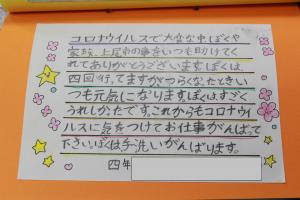 コロナウイルスで大変な中ぼくや
家族、上尾市の事をいつも助けてく
れてありがとうございます。ぼくは、
四回行ってますがつらくなったときい
つも元気になります。ぼくは、すごく
うれしかったです。これからもコロナウイ
ルスに気をつけてお仕事がんばって
下さい。ぼくは、手洗いがんばります。
四年